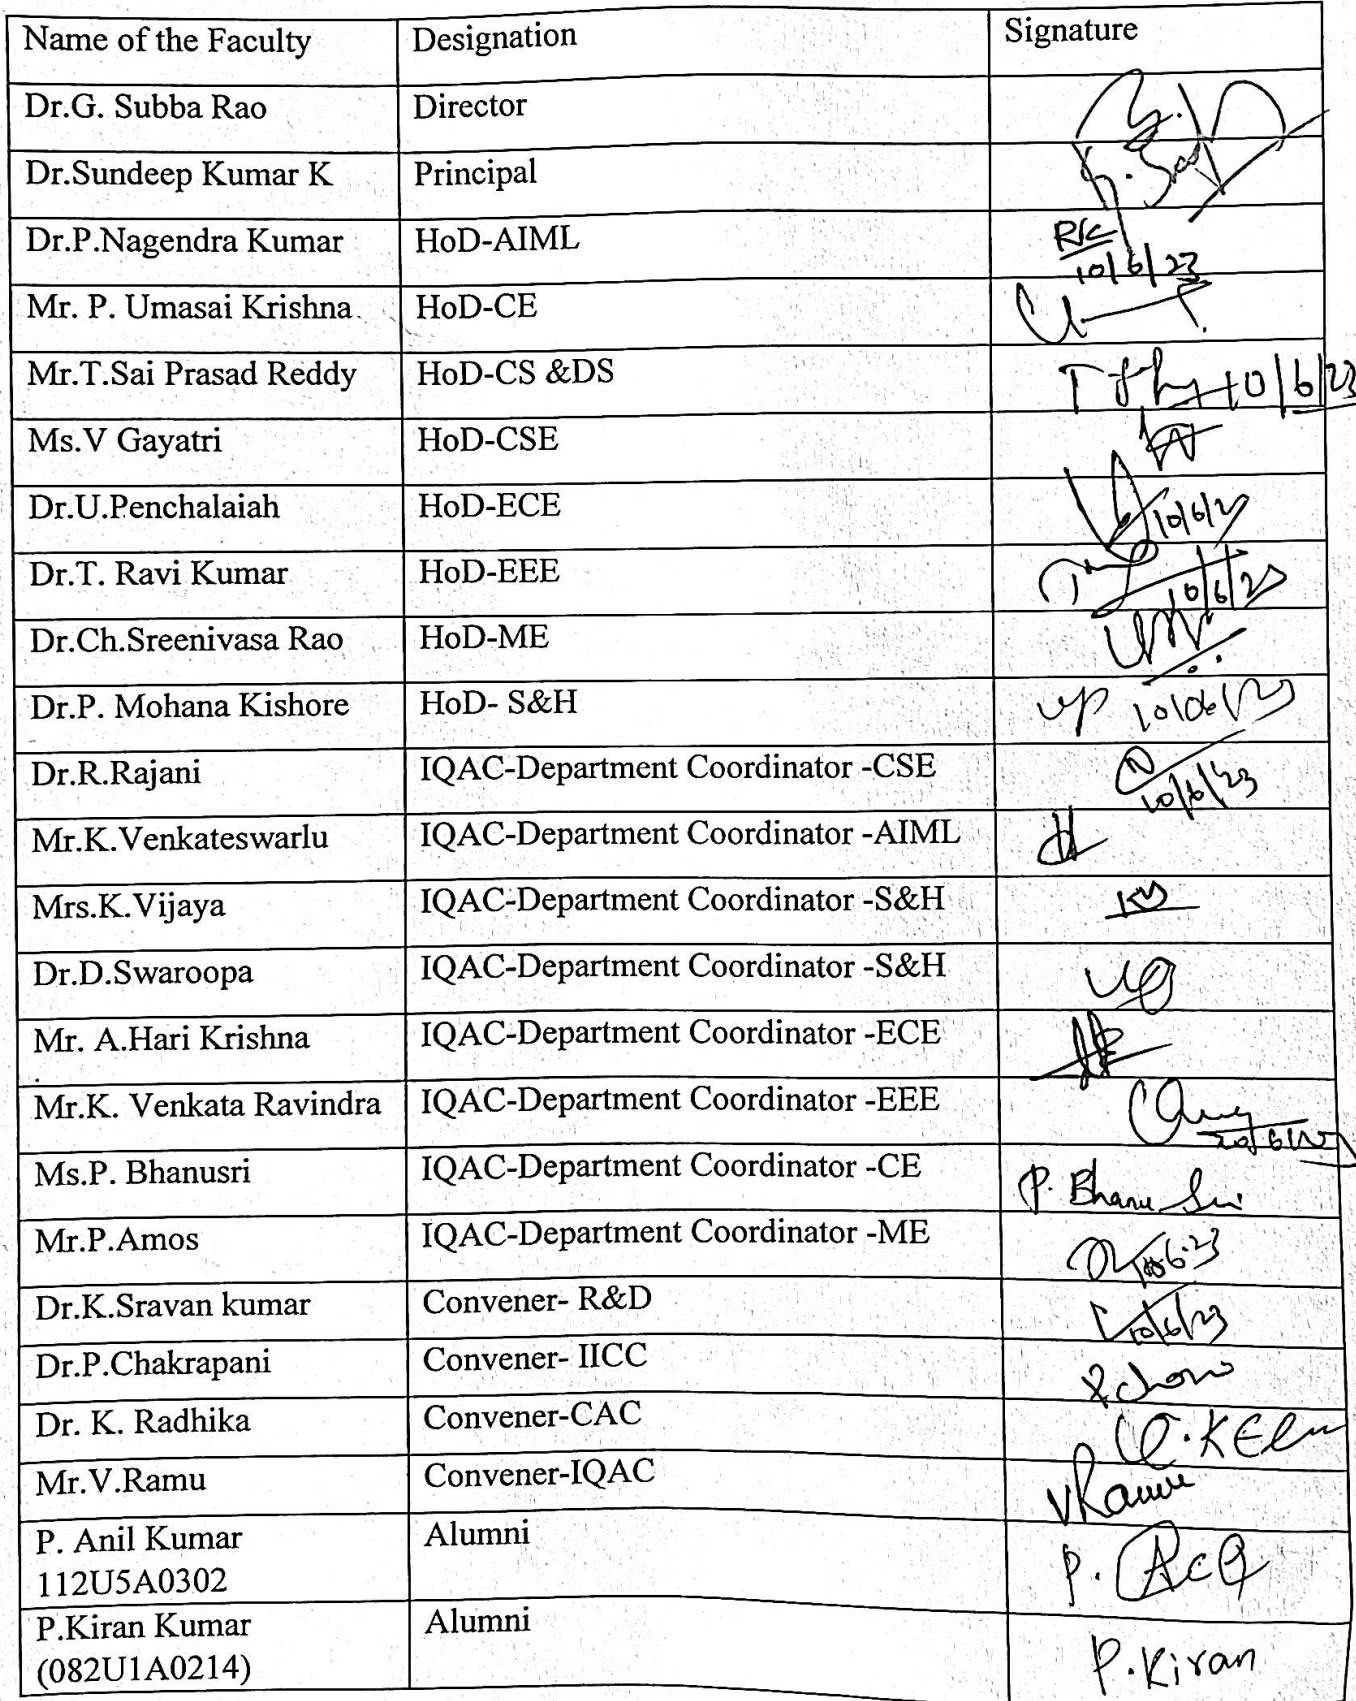 Name of the Faculty Designation Signature
Dr.G. Subba Rao Director
Dr.Sundeep Kumar K Principal
Dr.P.Nagendra Kumar HoD-AIML 10/6/23
Mr. P. Umasai Krishna HoD-CE
Mr.T.Sai Prasad Reddy HoD-CS &DS 10/6/23
Ms.V Gayatri HoD-CSE
Dr.U.Penchalaiah HoD-ECE
Dr.T. Ravi Kumar HoD-EEE 10/6/23
Dr.Ch.Sreenivasa Rao HoD-ME
Dr.P. Mohana Kishore HoD- S&H 10/06/23
Dr.R.Rajani IQAC-Department Coordinator -CSE 10/6/23
Mr.K.Venkateswarlu IQAC-Department Coordinator -AIML
Mrs.K.Vijaya IQAC-Department Coordinator -S&H
Dr.D.Swaroopa IQAC-Department Coordinator -S&H
Mr. A.Hari Krishna IQAC-Department Coordinator -ECE
Mr.K. Venkata Ravindra IQAC-Department Coordinator -EEE
Ms.P. Bhanusri IQAC-Department Coordinator -CE P. Bhanu Sri
Mr.P.Amos IQAC-Department Coordinator -ME
Dr.K.Sravan kumar Convener- R&D 10/6/23
Dr.P.Chakrapani Convener- IICC
Dr. K. Radhika Convener-CAC
Mr.V.Ramu Convener-IQAC VRamu
P. Anil Kumar Alumni
112U5A0302
P.Kiran Kumar Alumni
(082U1A0214) P.Kiran